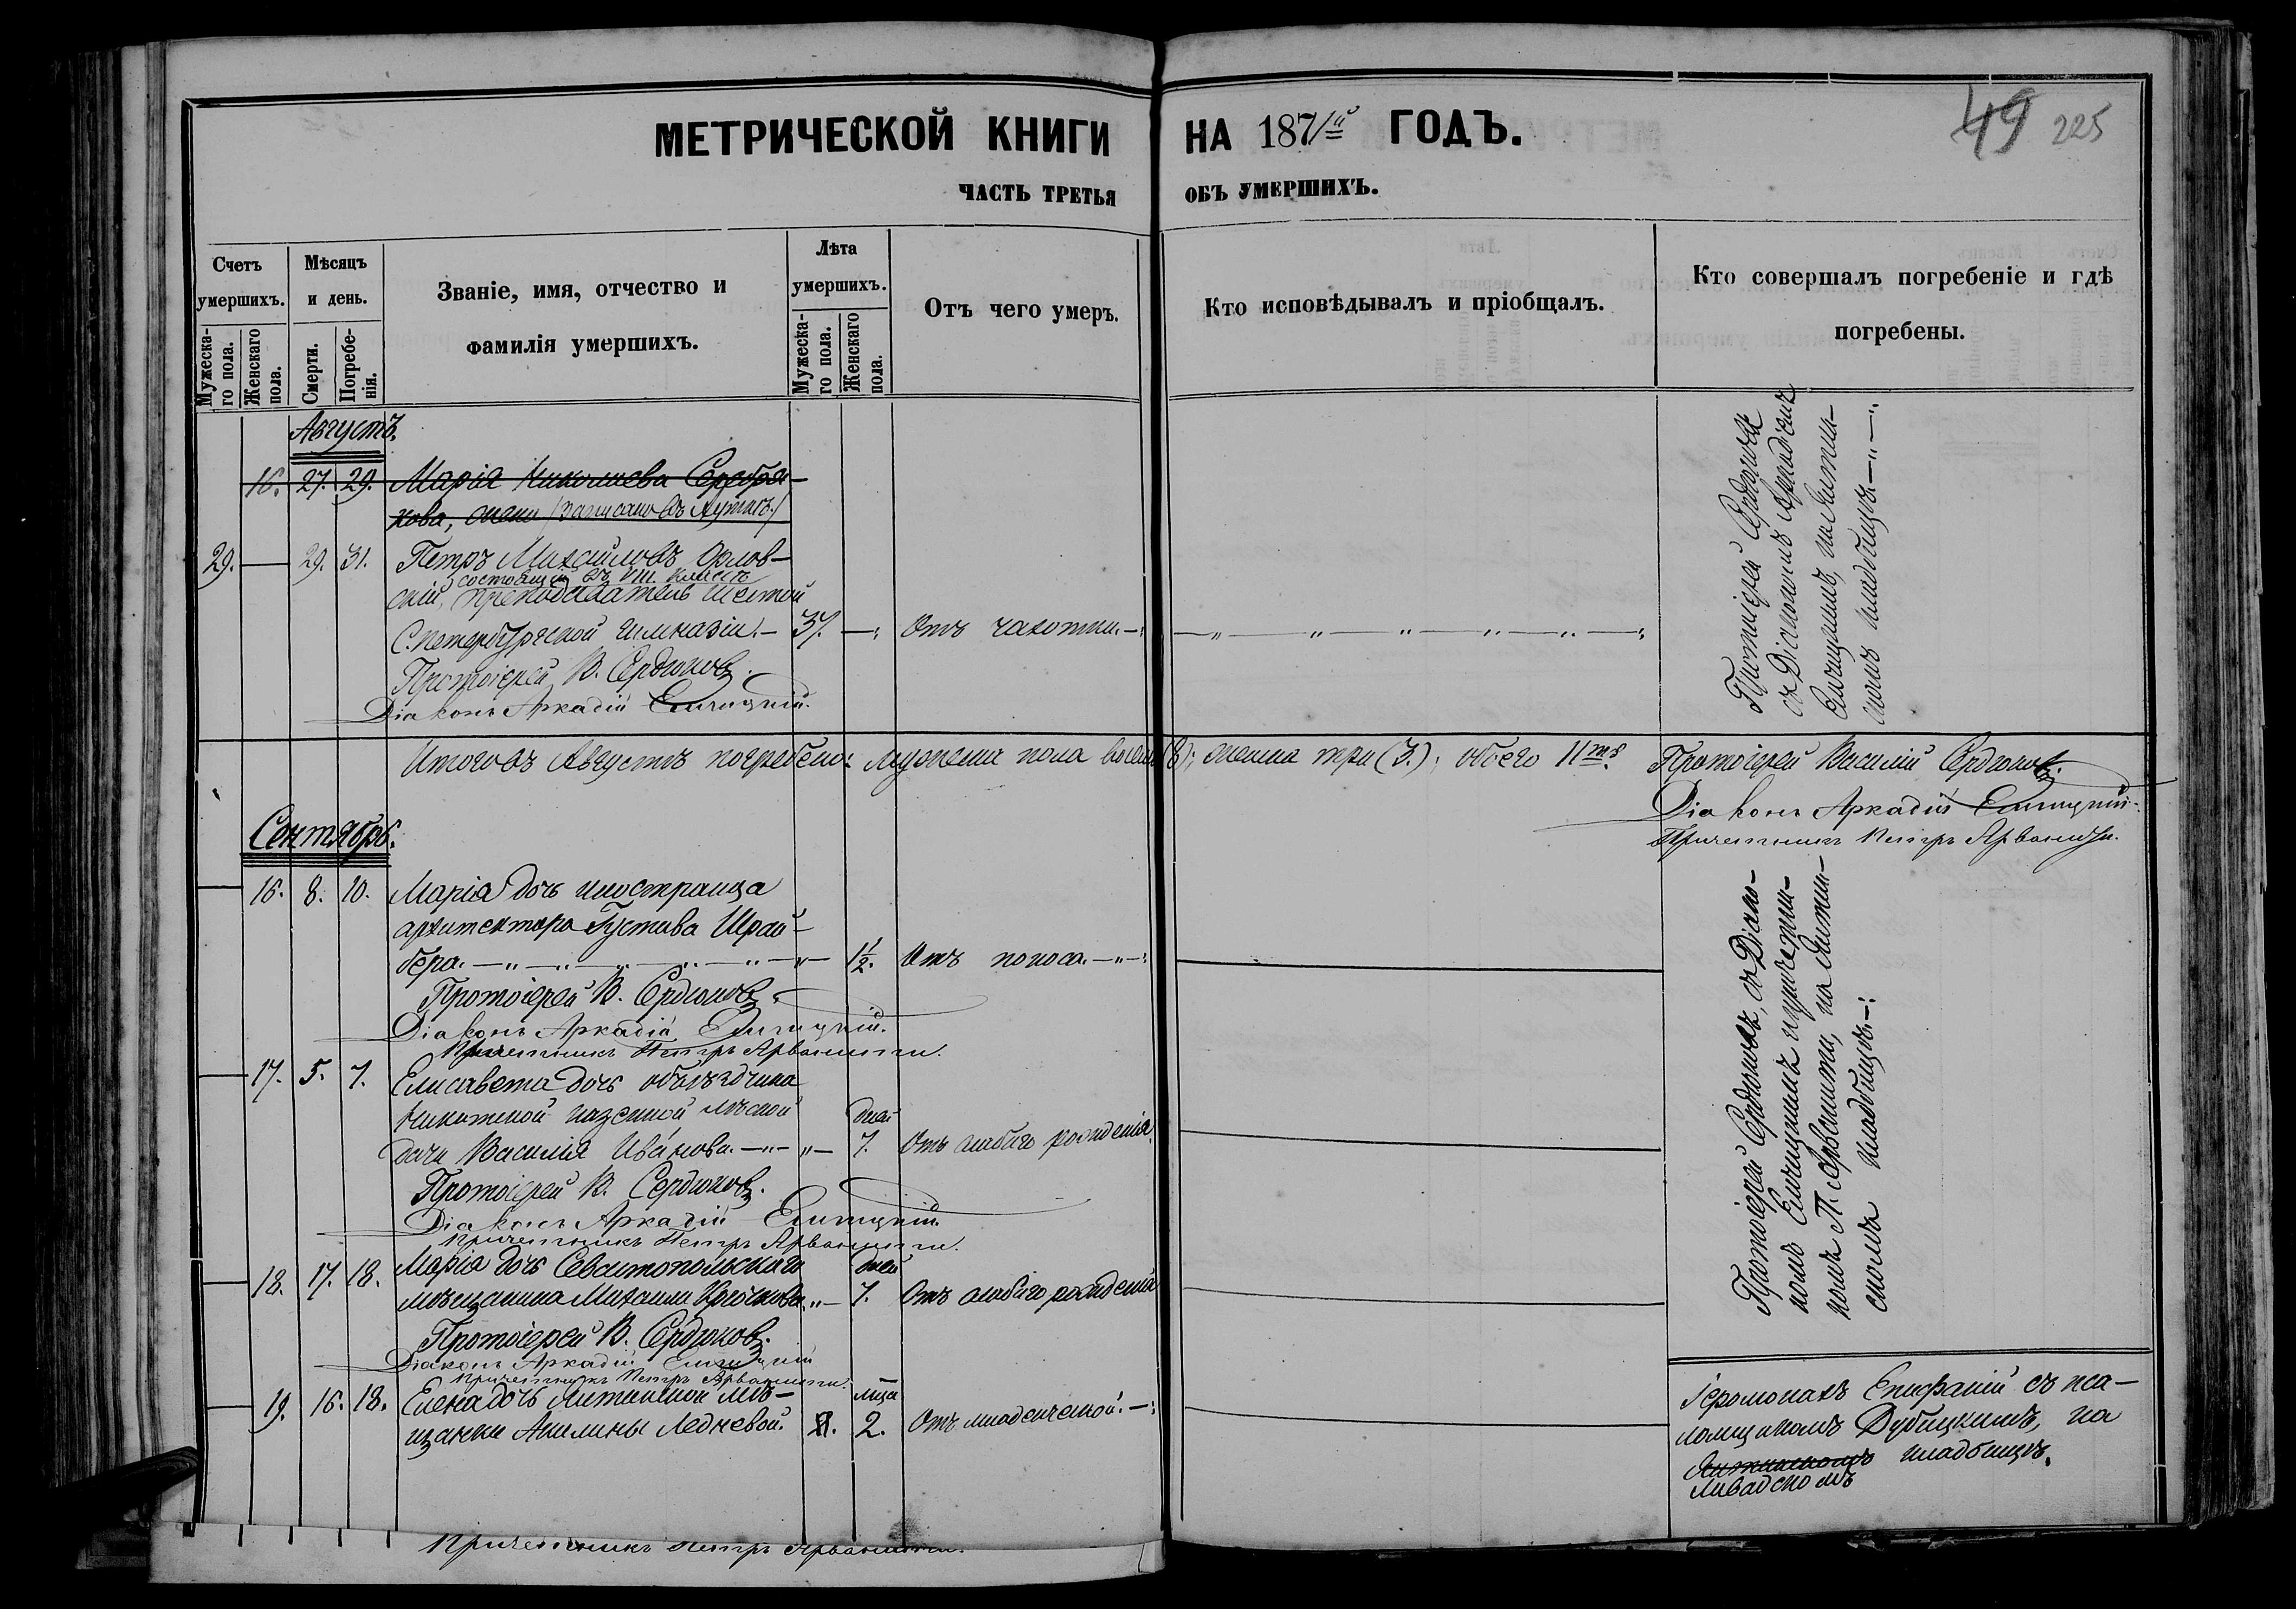 49 225
МЕТРИЧЕСКОЙ КНИГИ НА 1871й ГОДЪ.
ЧАСТЬ ТРЕТЬЯ ОБЪ УМЕРШИХЪ.
Счетъ умершихъ.
Мужеска-
го пола.
Женскаго
пола.
Мѣсяцъ
и день.
Смерти.
Погребе-
нія.
Званіе, имя, отчество и
фамилія умершихъ.
Лѣта
умершихъ.
Мужеска-
го пола.
Женскаго
пола.
Отъ чего умеръ.
Кто исповѣдывалъ и пріобщалъ.
Кто совершалъ погребеніе и гдѣ
погребены.
Августъ.
16. 27. 29. Марія Николаева Серебря-
кова, (записано въ Ауткѣ)
29. — 29. 31. Петръ Михайловъ Орлов-
состоящій въ VIII классѣ
скій, преподаватель шестой
С.петербургской гимназіи. — 37. — Отъ чахотки. —
Протоіерей В. Сердюковъ.
Діаконъ Аркадій
Протоіерей Сердюковъ
съ Діакономъ Аркадіемъ
на Ялтин-
скомъ кладбищѣ. —
Итого въ Августѣ погребено: мужеска пола восемь (8); женска три (3.); обоего 11ть.
Протоіерей Василій Сердюковъ.
Діаконъ Аркадій
Причетникъ Петръ Арванити.
Сентябрь.
— 16. 8. 10. Марія дочь иностранца
архитектора Густава Шрай-
бера. — 1½. Отъ поноса. —
Протоіерей В. Сердюковъ.
Діаконъ Аркадій
Причетникъ Петръ Арванити.
— 17. 5. 7. Елисавета дочь объѣздчика
Никитской казенной лѣсной
дачи Василія Иванова. — дней 7. Отъ слабаго рожденія.
Протоіерей В. Сердюковъ.
Діаконъ Аркадій
Причетникъ Петръ Арванити.
— 18. 17. 18. Марія дочь Севастопольскаго
мѣщанина Михаила — дней 7. Отъ слабаго рожденія
Протоіерей В. Сердюковъ.
Діаконъ Аркадій
Причетникъ Петръ Арванити.
Протоіерей Сердюковъ, съ Діако-
номъ и причетни-
комъ П. Арванити, на Ялтин-
скомъ кладбищѣ. —
— 19. 16. 18. Елена дочь Ялтинской мѣ-
щанки Акилины Ледневой. мца 2. Отъ младенческой. —
Іеромонахъ Епифаній съ пса-
ломщикомъ Дубицкимъ, на
Ялтинскомъ кладбищѣ.
Ливадскомъ
Причетникъ Петръ Арванити.